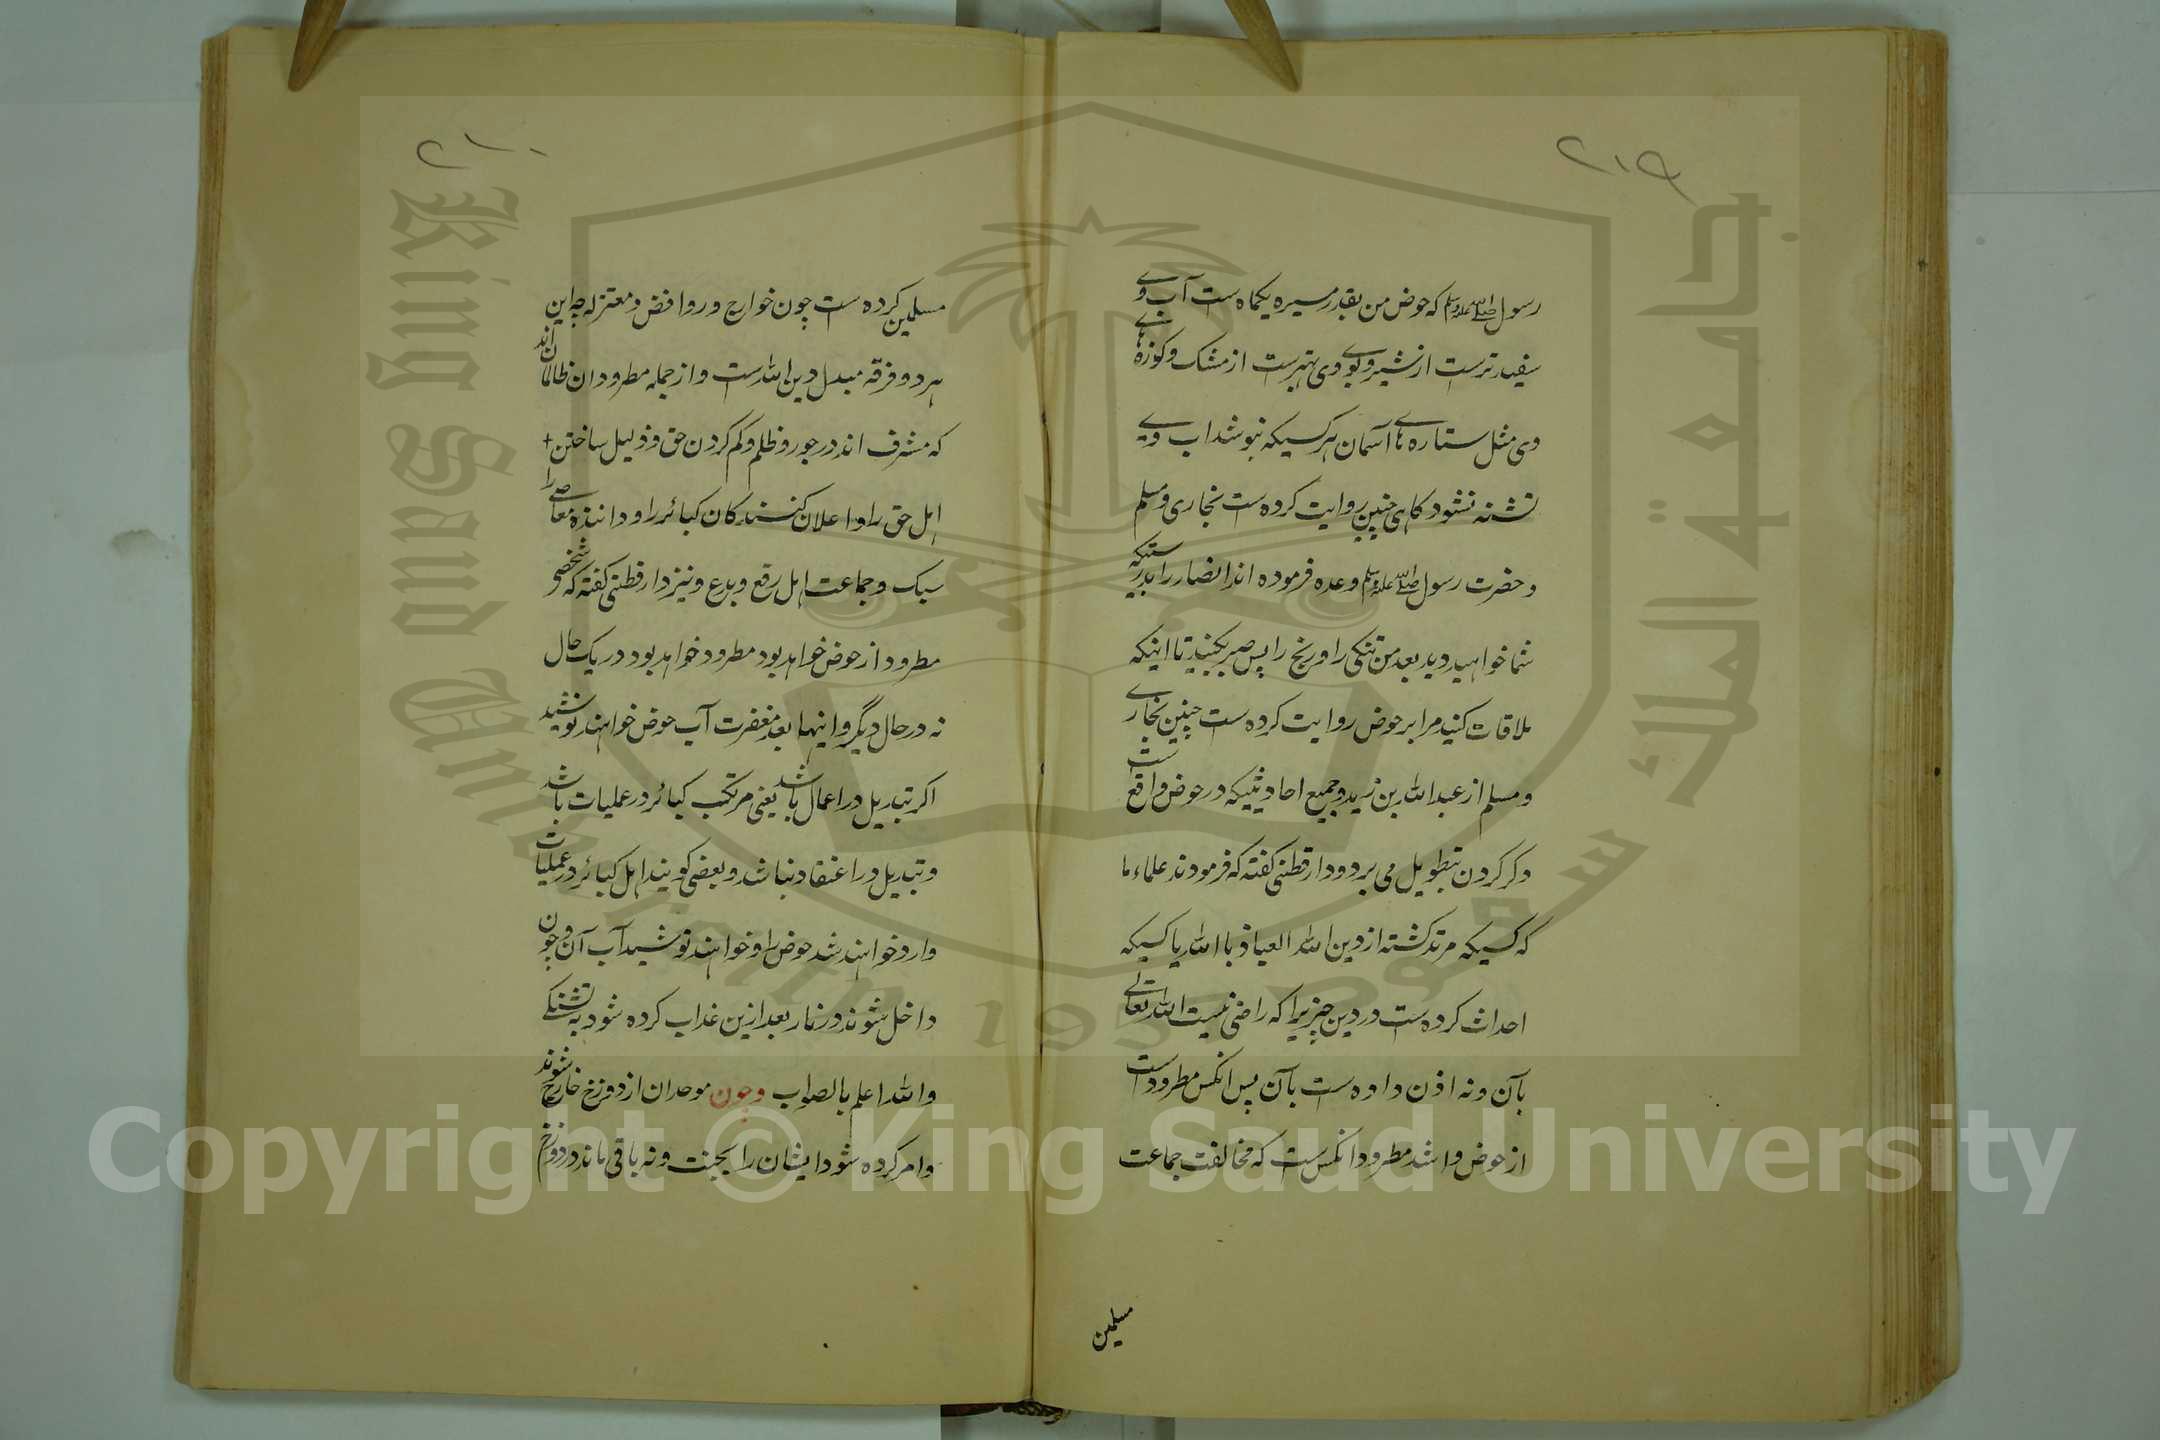 ۲۱۹
رسول صلی الله علیه وسلم که حوض من بقدر مسیره یکماه است آب وی
سفیدترست از شیر و بوی وی بهترست از مشک و کوزه‌های
وی مثل ستاره‌های آسمان هر کسیکه بنوشد آب وی
تشنه نشود کاهی چنین روایت کرده است بخاری و مسلم
و حضرت رسول صلی الله علیه وسلم وعده فرموده اند انصار را بدرستیکه
شما خواهید دید بعد من تنکی را و رنج را پس صبر بکنید تا اینکه
ملاقات کنید مرا بر حوض روایت کرده است چنین بخاری
و مسلم از عبد الله بن زید و جمیع احادیثیکه در حوض واقع است
ذکر کردن بتطویل می برد و دارقطنی کفته که فرمودند علماء ما
که کسیکه مرتد کشته از دین الله العیاذ باالله یا کسیکه
احداث کرده است در دین چیزیرا که راضی نیست الله تعالی
بآن و نه اذن داده است بآن پس انکس مطرود است
از حوض و اشد مطرود انکس است که مخالفت جماعت
مسلمین
۲۱۰
مسلمین کرده است چون خوارج و روافض و معتزله چه این
هر دو فرقه مبدل دین الله است و از جمله مطرودان ظالمان اند
که مشرف اند در جور و ظلم و کم کردن حق و ذلیل ساختن
اهل حق را و اعلان کنندکان کبائر را و دانندهٔ معاصی را
سبک و جماعت اهل رفع و بدع و نیز دارقطنی کفته که شخصی
مطرود از حوض خواهد بود مطرود خواهد بود در یک حال
نه در حال دیگر و اینها بعد مغفرت آب حوض خواهند نوشید
اگر تبدیل در اعمال باشد یعنی مرتکب کبائر در عملیات باشد
و تبدیل در اعتقاد نباشد و بعضی کویند اهل کبائر در عملیات
وارد خواهند شد حوض را و خواهند نوشید آب آن و چون
داخل شوند در نار بعد ازین عذاب کرده شود به تشنکی
والله اعلم بالصواب و چون موحدان از دوزخ خارج شوند
و امر کرده شود ایشان را بجنت و نه باقی ماند در دوزخ
King Saud University
1957
جامعة الملك سعود
Copyright © King Saud University